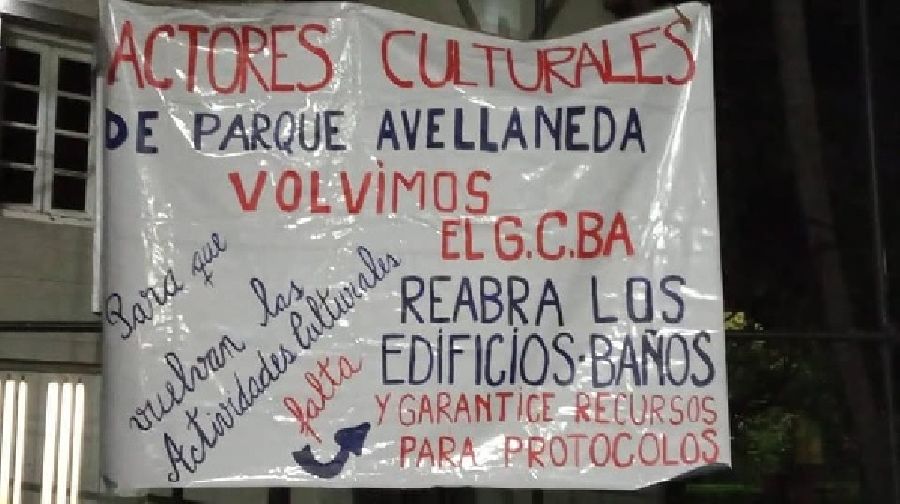 ACTORES CULTURALES
DE PARQUE AVELLANEDA
VOLVIMOS
Para que
vuelvan las
Actividades Culturales
falta
EL G.C.BA
REABRA LOS
EDIFICIOS·BAÑOS
Y GARANTICE RECURSOS
PARA PROTOCOLOS